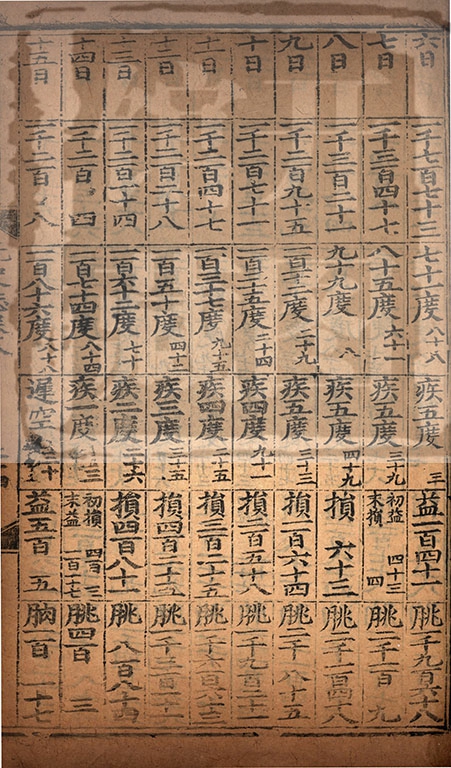 六日 一千 百七十三 七十一度 八十八 疾五度 三 益一百四十一 朓一千九百六十八
七日 一千三百四十七 八十五度 六十一 疾五度 三十九 初益 四十三 末損 四 朓二千一百 九
八日 一千三百二十一 九十九度 八 疾五度 四十九 損 六十三 朓二千一百四十八
九日 一千二百九十五 一百一十二度 二十九 疾五度 三十三 損一百六十四 朓二千 八十五
十日 一千二百七十一 一百二十五度 二十四 疾四度 九十一 損二百五十八 朓一千九百二十一
十一日 一千二百四十七 一百三十七度 九十五 疾四度 二十五 損三百 朓一千六百六十三
十二日 一千二百二十八 一百五十度 四十二 疾三度 三十五 損四百二十 朓一千三百
十三日 一千二百一十四 一百六十二度 七十 疾二度 二十六 損四百八十一 朓 八百八十四
十四日 一千二百 四 一百七十四度 八十四 疾一度 三 初損 四百 三 末益 一百一十七 朓四百 三
十五日 一千二百 八 一百八十六度 八十八 遲空 三十 益五百 五 朒一百 一十七